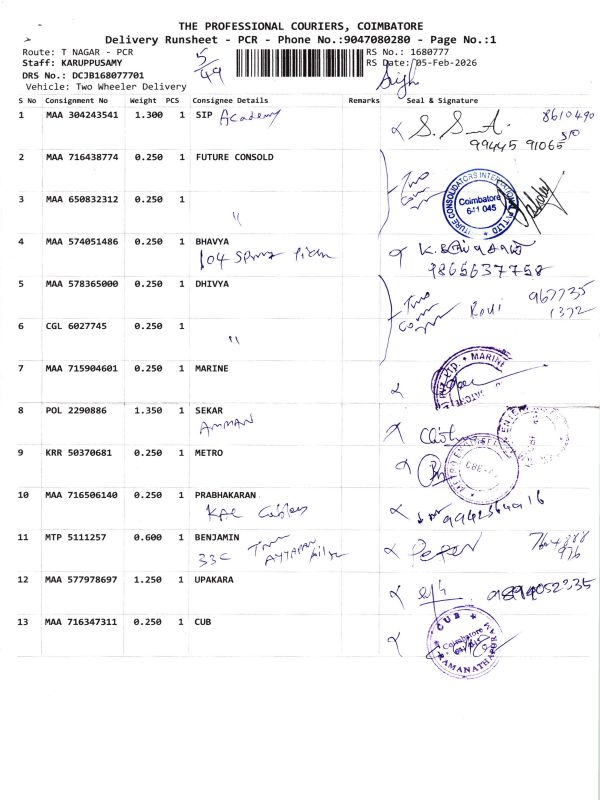 THE PROFESSIONAL COURIERS, COIMBATORE
Delivery Runsheet - PCR - Phone No.:9047080280 - Page No.:1
Route: T NAGAR - PCR RS No.: 1680777
Staff: KARUPPUSAMY 5/49 RS Date: 05-Feb-2026
DRS No.: DCJB168077701
Vehicle: Two Wheeler Delivery
S No Consignment No Weight PCS Consignee Details Remarks Seal & Signature
1 MAA 304243541 1.300 1 SIP Academy
99445 91065
2 MAA 716438774 0.250 1 FUTURE CONSOLD Two
Coimbatore
641 045
3 MAA 650832312 0.250 1 "
4 MAA 574051486 0.250 1 BHAVYA
104
9865637758
5 MAA 578365000 0.250 1 DHIVYA Two
6 CGL 6027745 0.250 1 "
7 MAA 715904601 0.250 1 MARINE MARINE
8 POL 2290886 1.350 1 SEKAR
AMMAN
9 KRR 50370681 0.250 1 METRO
10 MAA 716506140 0.250 1 PRABHAKARAN
11 MTP 5111257 0.600 1 BENJAMIN
33C
12 MAA 577978697 1.250 1 UPAKARA
13 MAA 716347311 0.250 1 CUB CUB
Coimbatore
RAMANATHAPURAM